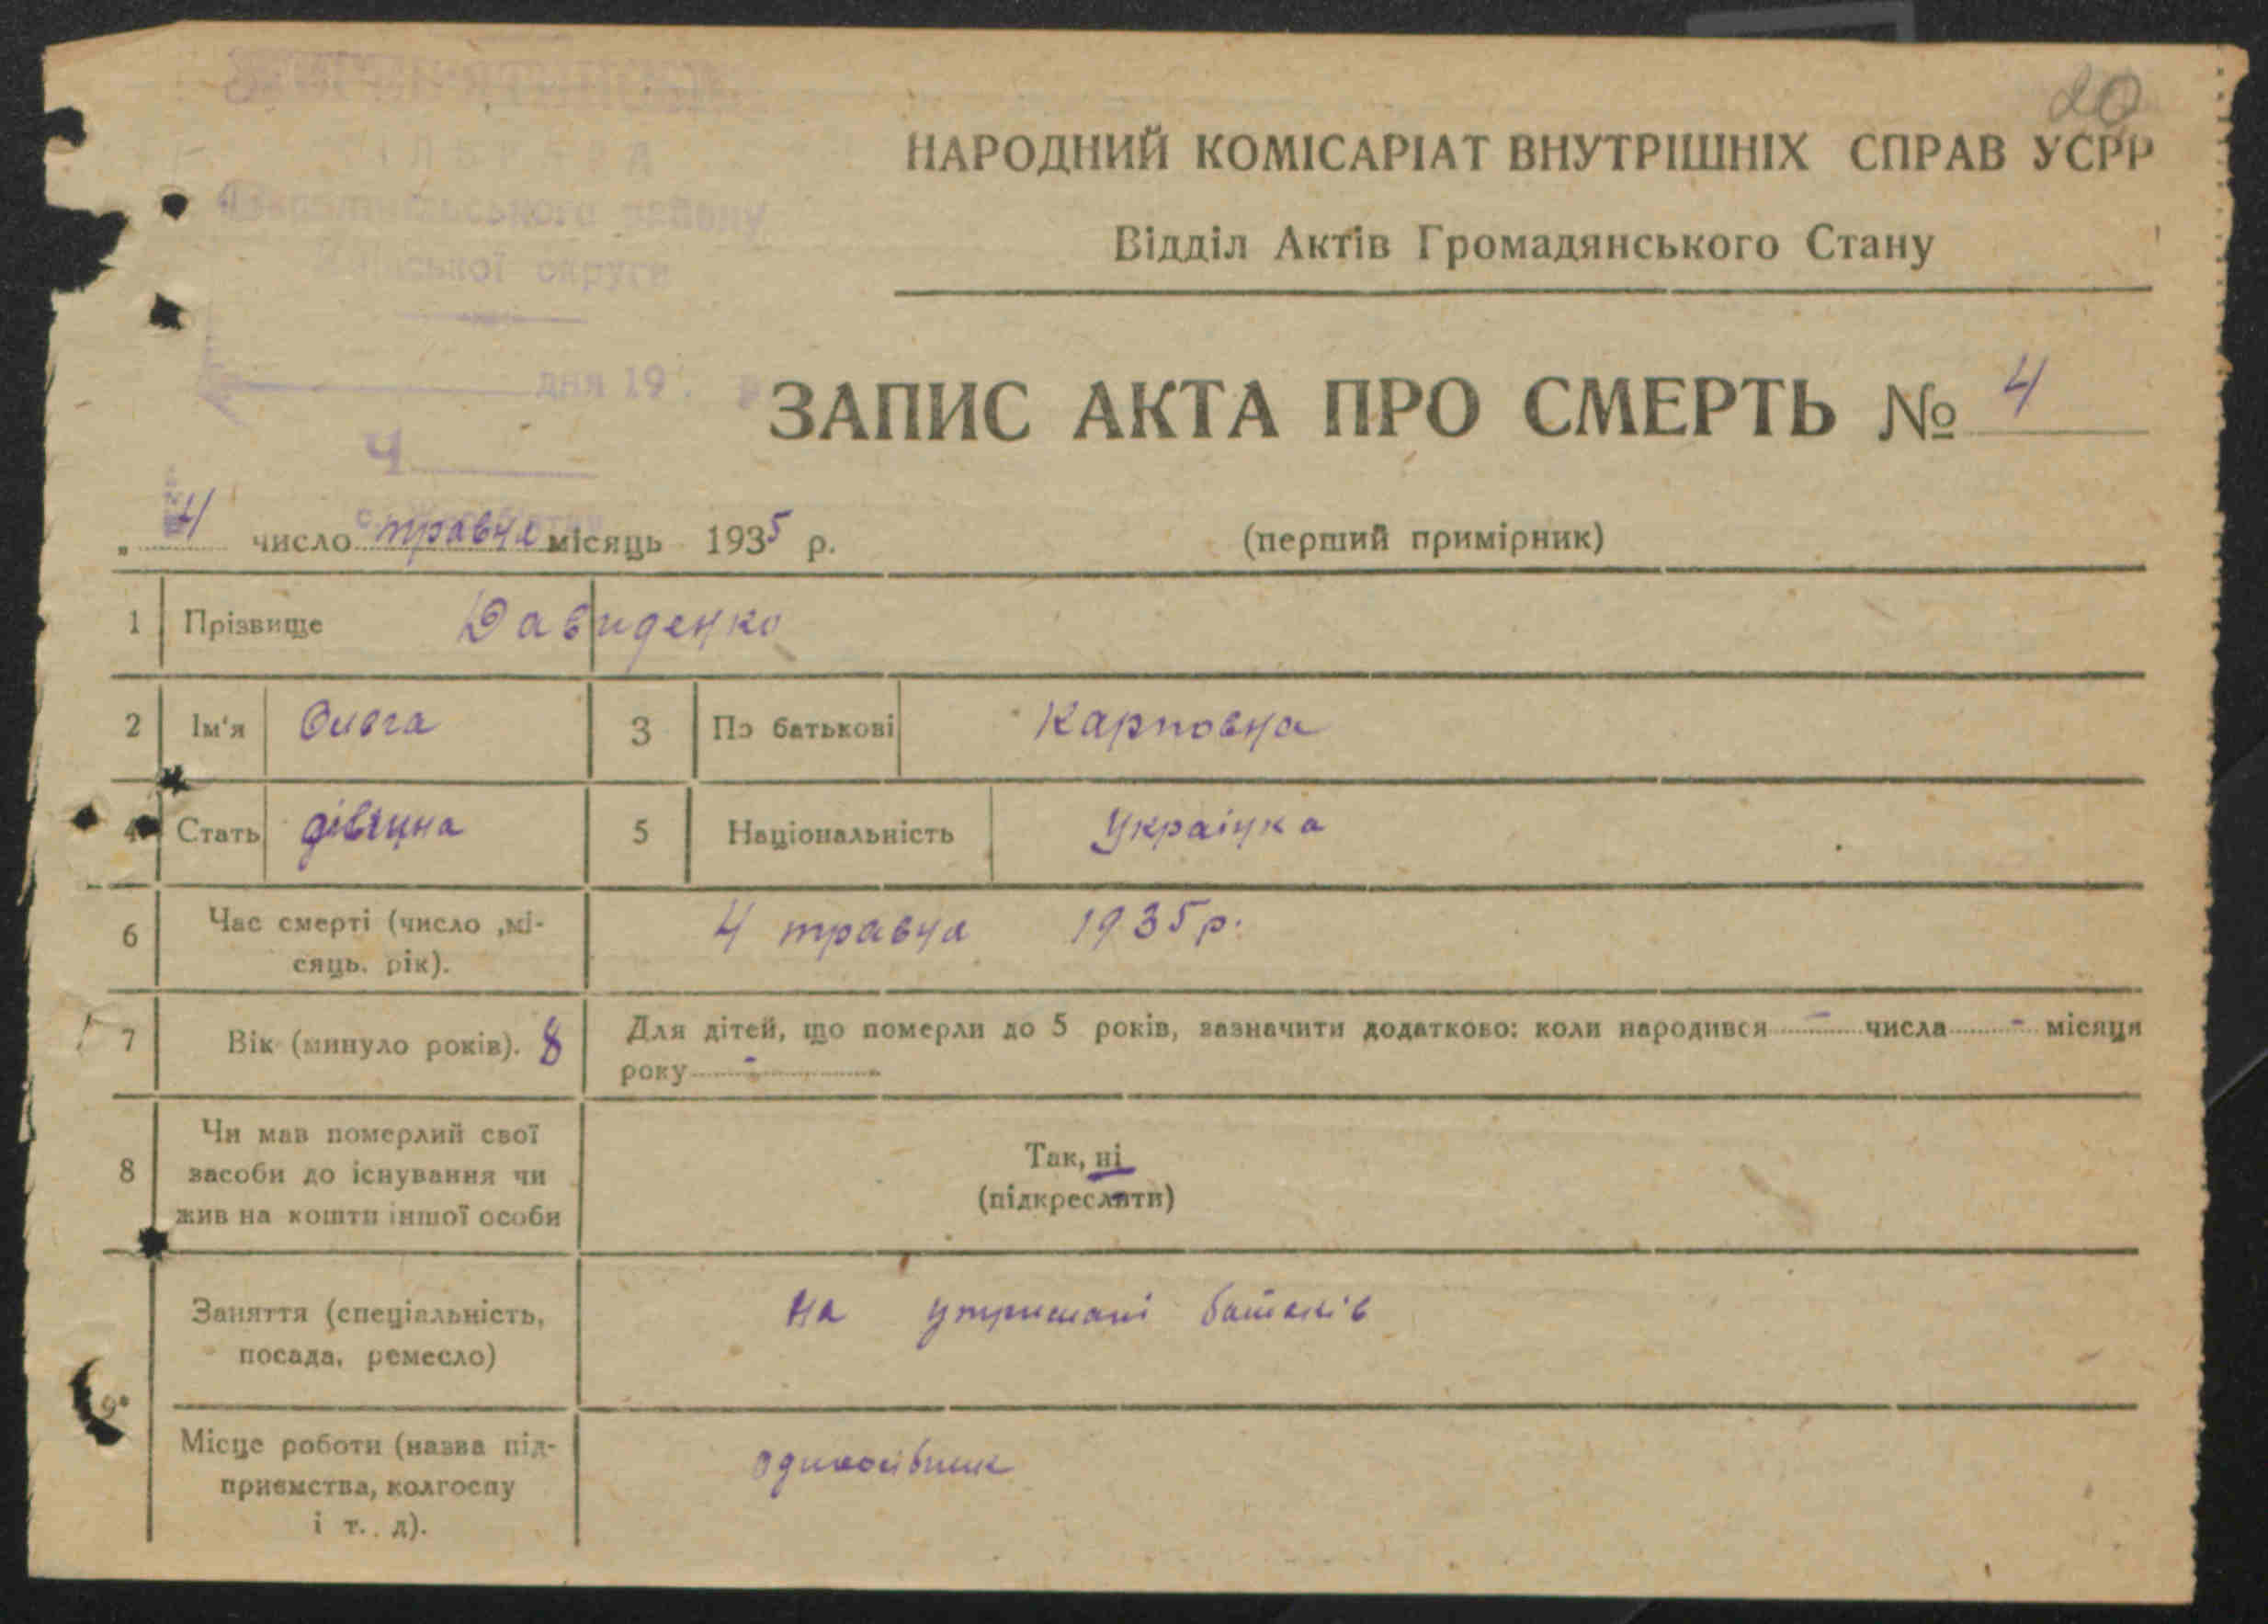 20
НАРОДНИЙ КОМІСАРІАТ ВНУТРІШНІХ СПРАВ УСРР
Відділ Актів Громадянського Стану
району
округи
дня 19 . р.
ЗАПИС АКТА ПРО СМЕРТЬ № 4
Ч
„ 4 число травня місяць 1935 р.
(перший примірник)
1 Прізвище Давиденко
2 Ім'я Ольга 3 По батькові Карповна
4 Стать дівчина 5 Національність Українка
6 Час смерті (число ,мі-
сяць. рік). 4 травня 1935 р.
7 Вік (минуло років). 8 Для дітей, що померли до 5 років, зазначити додатково: коли народився - числа - місяця
року -
8 Чи мав померлий свої
засоби до існування чи
жив на кошти іншої особи
Так, ні
(підкреслити)
9
Заняття (спеціальність,
посада, ремесло)
на утримані батьків
Місце роботи (назва під-
приємства, колгоспу
і т. д).
одноосібник